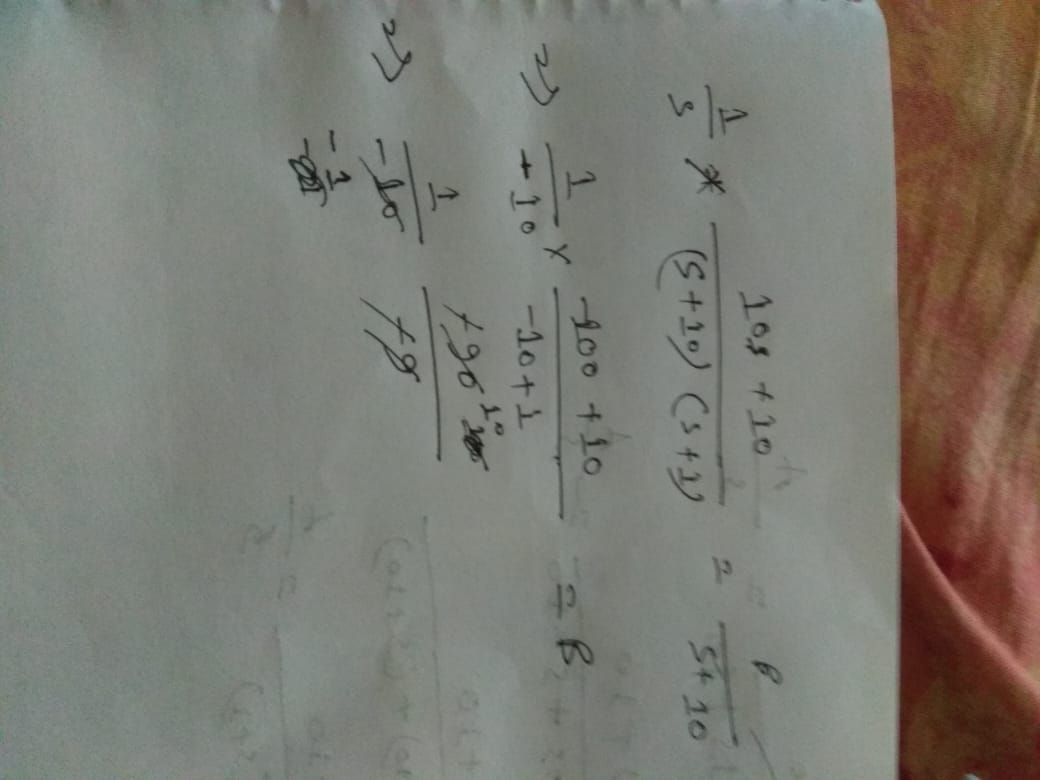 1/s * (10s + 10)/((s+10) (s+1)) = B/(s+10)
=> 1/-10 x (-100 + 10)/(-10+1) = B
=> 1/-10 +90/+9 10
-1